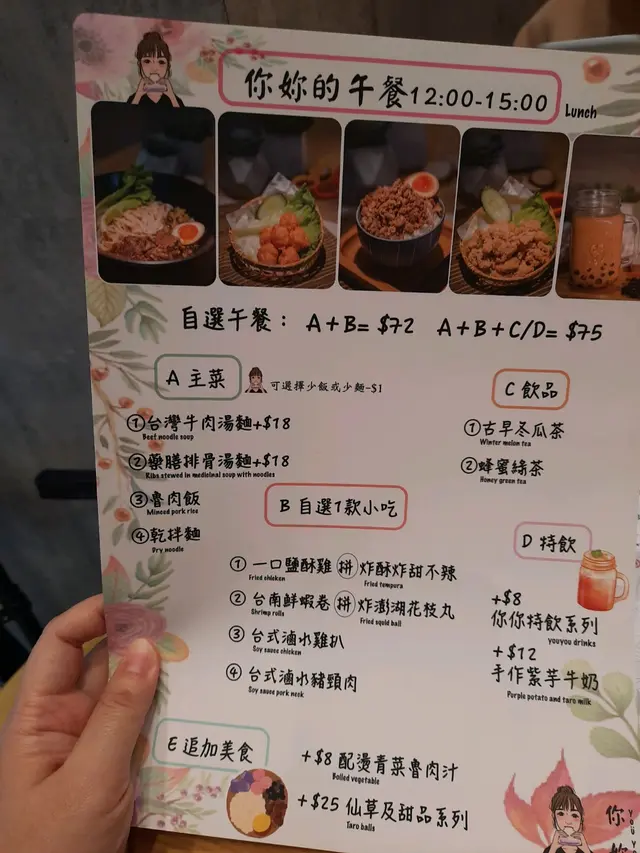 你妳的午餐12:00-15:00
Lunch
自選午餐： A+B= $72 A+B+C/D= $75
A 主菜
可選擇少飯或少麵-$1
①台灣牛肉湯麵+$18
Beef noodle soup
②藥膳排骨湯麵+$18
Ribs stewed in medicinal soup with noodles
③魯肉飯
Minced pork rice
④乾拌麵
Dry noodle
C 飲品
①古早冬瓜茶
Winter melon tea
②蜂蜜綠茶
Honey green tea
B 自選1款小吃
① 一口鹽酥雞 拼 炸酥炸甜不辣
Fried chicken Fried tempura
② 台南鮮蝦卷 拼 炸澎湖花枝丸
Shrimp rolls Fried squid ball
③ 台式滷水雞扒
Soy sauce chicken
④ 台式滷水豬頸肉
Soy sauce pork neck
D 特飲
+$8
你你特飲系列
youyou drinks
+$12
手作紫芋牛奶
Purple potato and taro milk
E 追加美食
+$8 配燙青菜魯肉汁
Boiled vegetable
+$25 仙草及甜品系列
Taro balls